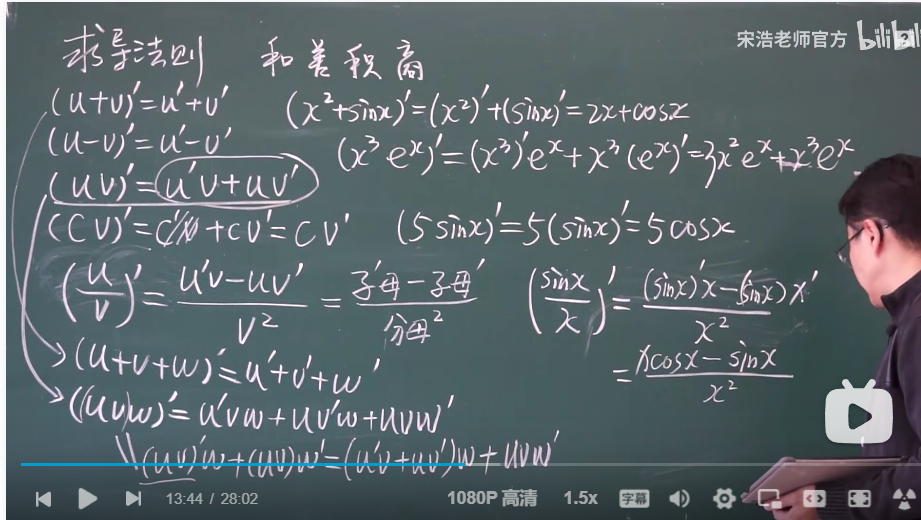 宋浩老师官方 bilibili
求导法则 和差积商
(u+v)'=u'+v' (x²+sinx)'=(x²)'+(sinx)'=2x+cosx
(u-v)'=u'-v' (x³eˣ)'=(x³)'eˣ+x³(eˣ)'=3x²eˣ+x³eˣ
(uv)'=u'v+uv'
(CV)'=C'V+CV'=CV' (5sinx)'=5(sinx)'=5cosx
(u/v)'=(u'v-uv')/v²=(子'母-子母')/分母² (sinx/x)'=((sinx)'x-(sinx)x')/x²
=(xcosx-sinx)/x²
(u+v+w)'=u'+v'+w'
((uv)w)'=u'vw+uv'w+uvw'
\\(uv)'w+(uv)w'=(u'v+uv')w+uvw'
13:44 / 28:02 1080P 高清 1.5x 字幕